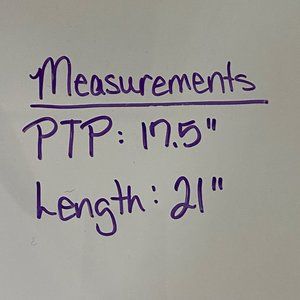 Measurements
PTP: 17.5"
Length: 21"